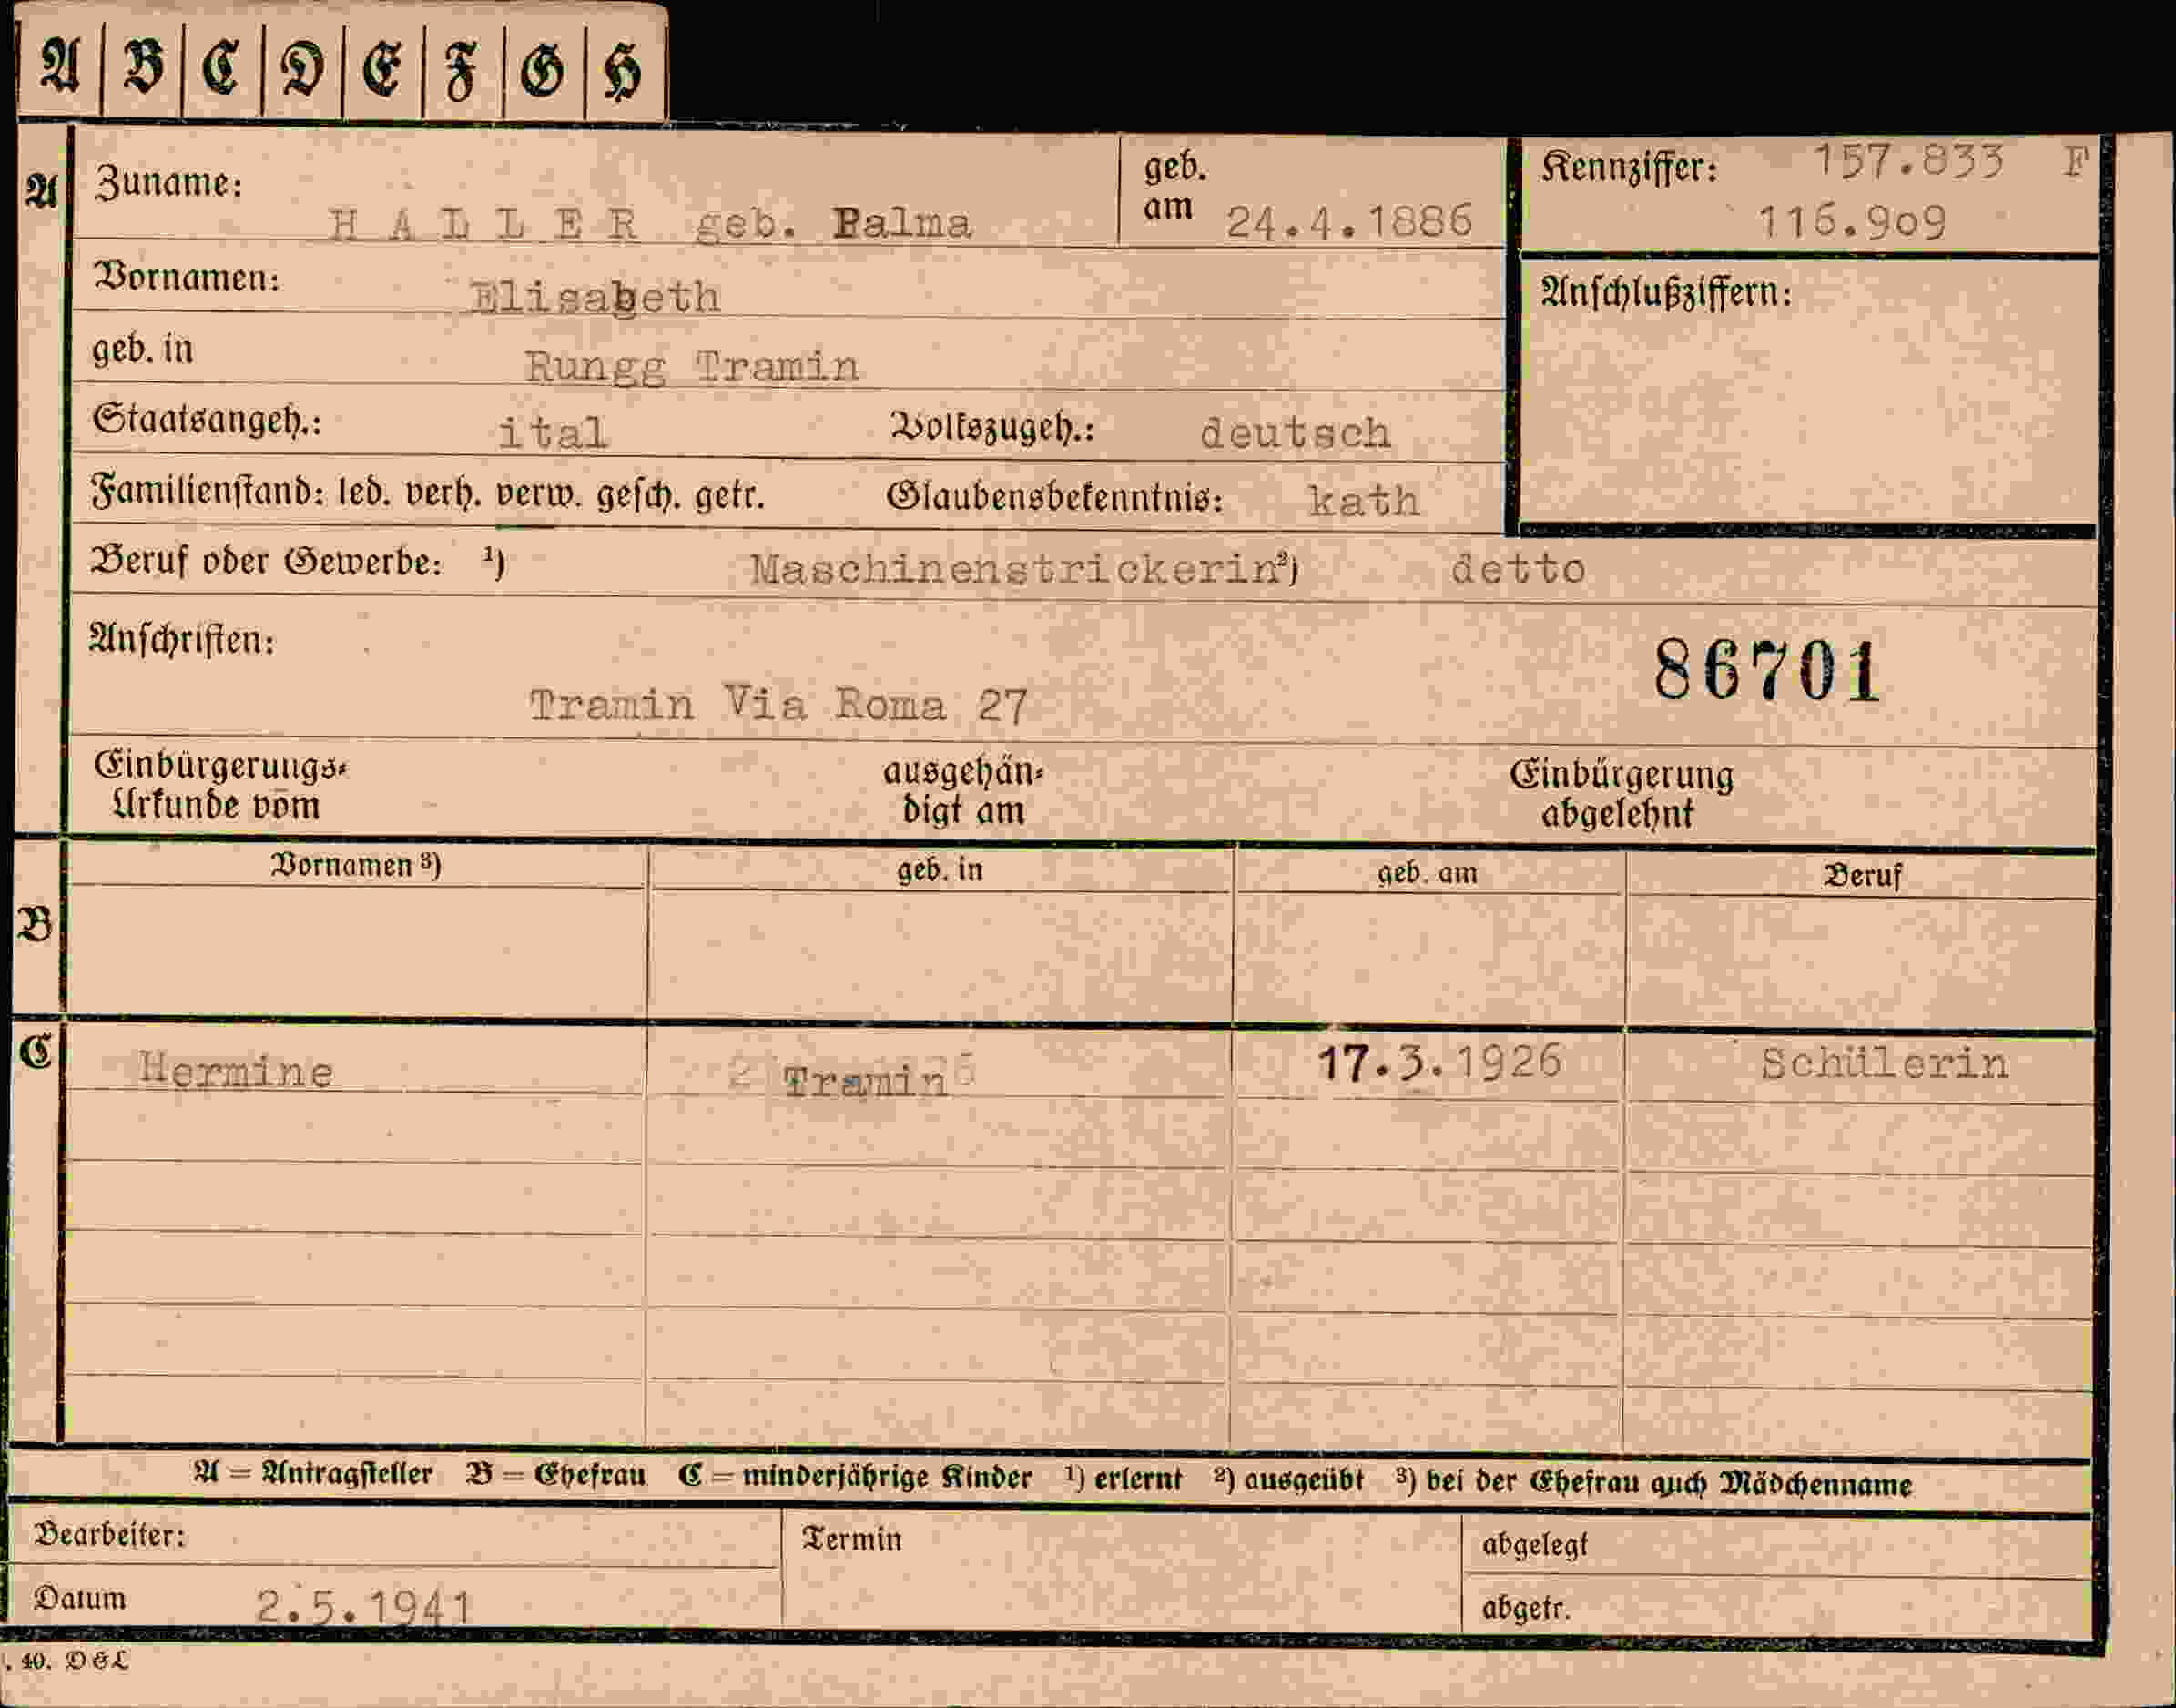 A B C D E F G H
A Zuname: HALLER geb. Palma geb. am 24.4.1886 Kennziffer: 157.833 F
116.909
Vornamen: Elisabeth Anschlußziffern:
geb. in Rungg Tramin
Staatsangeh.: ital Volkszugeh.: deutsch
Familienstand: led. verh. verw. gesch. getr. Glaubensbekenntnis: kath
Beruf oder Gewerbe: ¹) Maschinenstrickerin ²) detto
Anschriften: 86701
Tramin Via Roma 27
Einbürgerungs- ausgehän- Einbürgerung
Urkunde vom digt am abgelehnt
Vornamen ³) geb. in geb. am Beruf
B
C Hermine Tramin 17.3.1926 Schülerin
A = Antragsteller B = Ehefrau C = minderjährige Kinder ¹) erlernt ²) ausgeübt ³) bei der Ehefrau auch Mädchenname
Bearbeiter: Termin abgelegt
Datum 2.5.1941 abgetr.
. 40. D & L